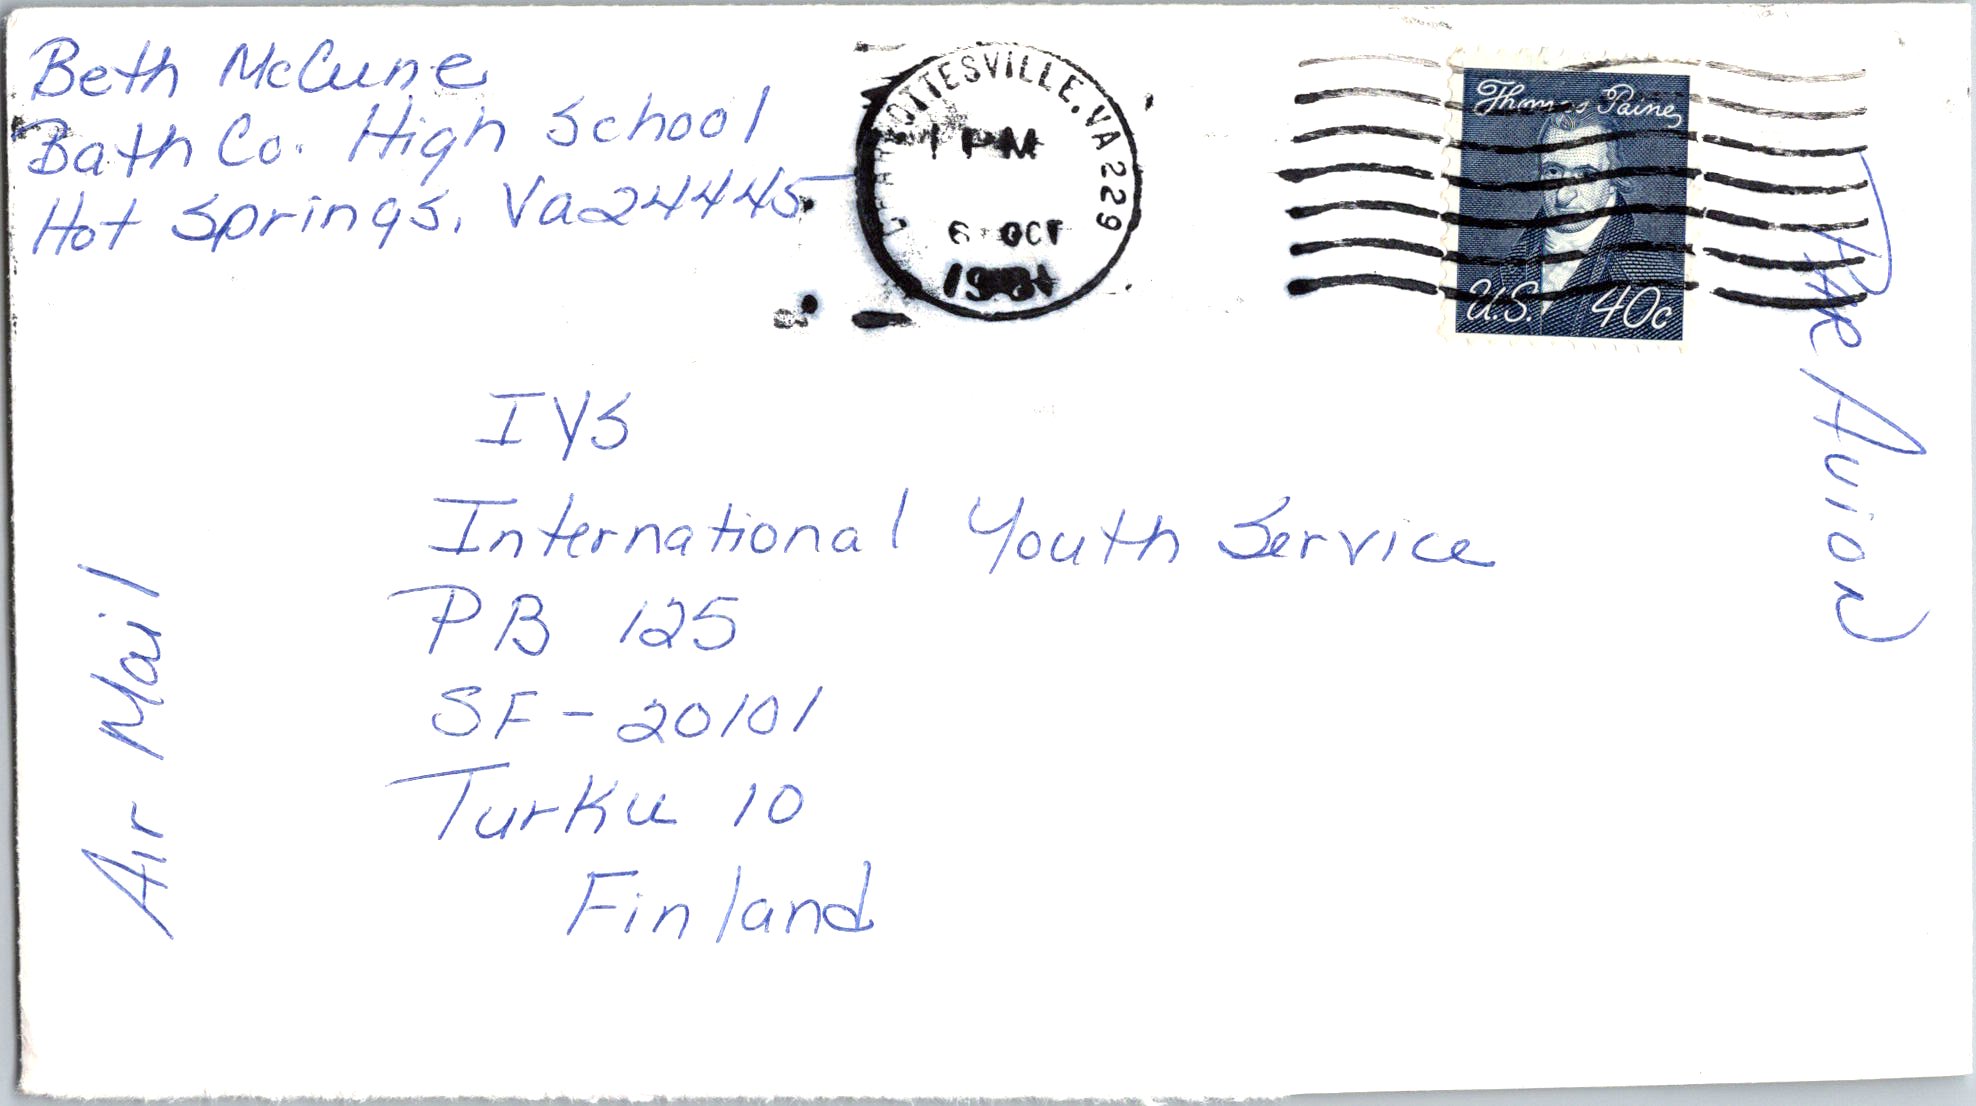 Beth McCune
Bath Co. High School
Hot Springs, Va 24445
CHARLOTTESVILLE, VA 229
1 PM
6 OCT
1981
Thomas Paine
U.S. 40c
IYS
International Youth Service
PB 125
SF-20101
Turku 10
Finland
Air Mail
Par Avion